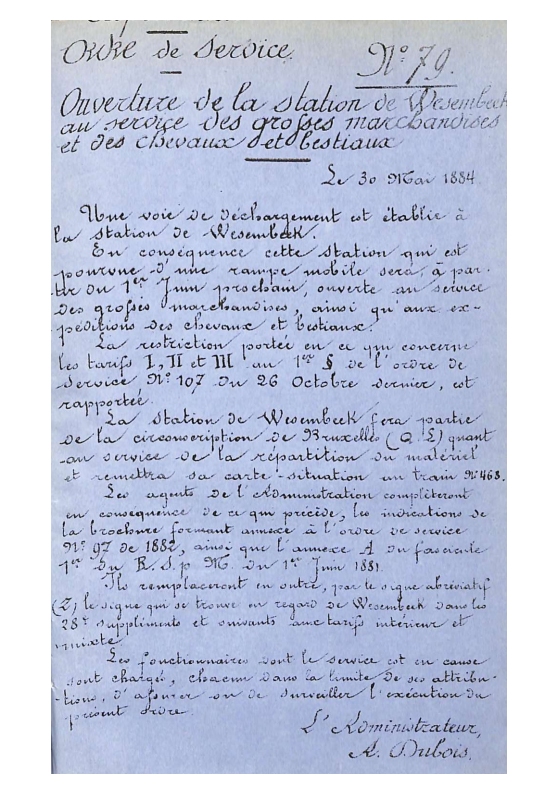 Ordre de Service.
N° 79.
Ouverture de la station de Wesembeek
au service des grosses marchandises
et des chevaux et bestiaux
Le 30 Mai 1884
Une voie de déchargement est établie à
la station de Wesembeek.
En conséquence cette station qui est
pourvue d'une rampe mobile sera, à par-
tir du 1er Juin prochain, ouverte au service
des grosses marchandises, ainsi qu'aux ex-
péditions des chevaux et bestiaux.
La restriction portée en ce qui concerne
les tarifs I, II et III au 1er § de l'ordre de
service N° 107 du 26 Octobre dernier, est
rapportée.
La station de Wesembeek fera partie
de la circonscription de Bruxelles (Q. L) quant
au service de la répartition du matériel
et remettra sa carte-situation au train N° 468.
Les agents de l'Administration complèteront
en conséquence de ce qui précède, les indications de
la brochure formant annexe à l'ordre de service
N° 97 de 1882, ainsi que l'annexe A du fascicule
1er du R. S. p M. du 1er Juin 1881.
Ils remplaceront en outre, par le signe abréviatif
(Z) le signe qui se trouve en regard de Wesembeek dans les
28e suppléments et suivants aux tarifs intérieur et
mixte.
Les fonctionnaires dont le service est en cause
sont chargés, chacun dans la limite de ses attribu-
tions, d'assurer ou de surveiller l'exécution du
présent ordre.
L'Administrateur,
A. Dubois.